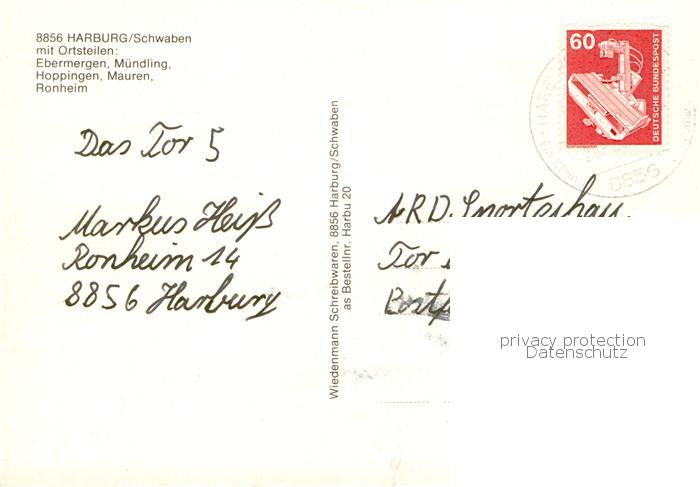 8856 HARBURG/Schwaben
mit Ortsteilen:
Ebermergen, Mündling,
Hoppingen, Mauren,
Ronheim
Das Tor 5
Markus Heiß
Ronheim 14
8856 Harburg
Wiedenmann Schreibwaren, 8856 Harburg/Schwaben
as Bestellnr. Harbu 20
60
DEUTSCHE BUNDESPOST
RÖNTGENGERÄT
8856
ARD. Sportschau
Tor
privacy protection
Datenschutz